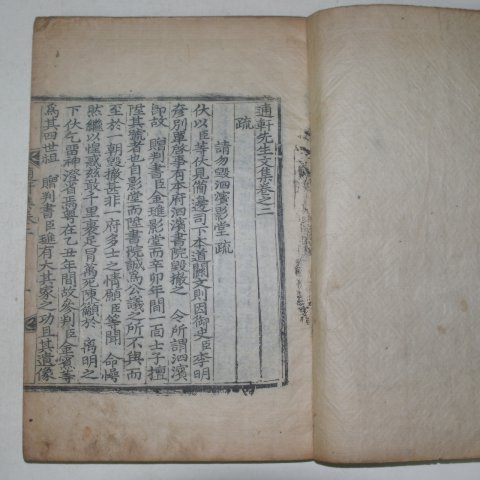 適軒先生文集卷之二
疏
請勿毀泗濱影堂疏
伏以臣等伏見備邊司下本道關文則因御史臣李明
彦別單啓事有本府泗濱書院毀撤之 令所謂泗濱
卽故 贈判書臣金璡影堂而辛卯年間一面士子擅
陞其號者也自影堂而陞書院誠爲公議之所不與而
至於一朝毀撤甚非一府多士之情願臣等聞 命
然繼以惶惑玆敢千里裹足冒萬死陳籲於 离明之
下伏乞留神澄省焉粤在乙丑年間故參判臣金 等
爲其四世祖 贈判書臣璡有大其家之功且其遺像